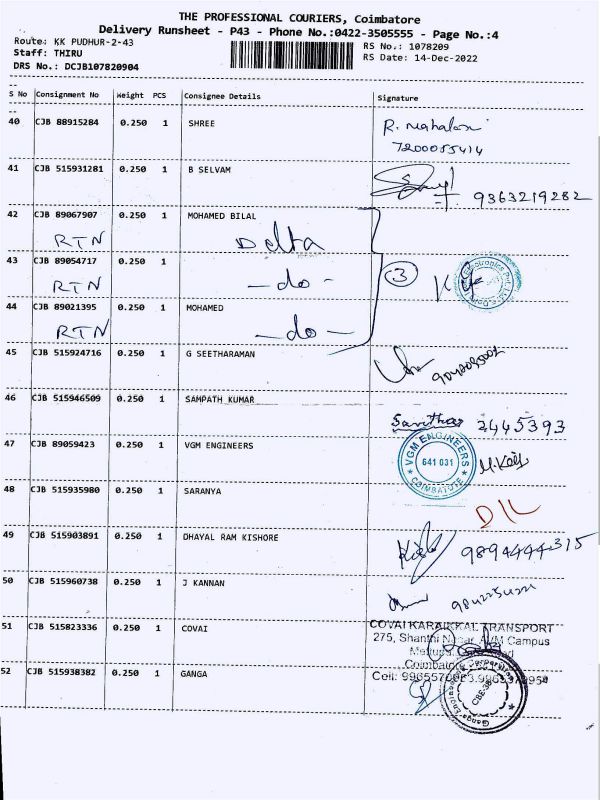 THE PROFESSIONAL COURIERS, Coimbatore
Delivery Runsheet - P43 - Phone No.:0422-3505555 - Page No.:4
Route: KK PUDHUR-2-43
RS No.: 1078209
Staff: THIRU
RS Date: 14-Dec-2022
DRS No.: DCJB107820904
S No Consignment No Weight PCS Consignee Details Signature
40 CJB 88915284 0.250 1 SHREE
7200055414
41 CJB 515931281 0.250 1 B SELVAM
9363219282
42 CJB 89067907 0.250 1 MOHAMED BILAL
RTN Delta
43 CJB 89054717 0.250 1
RTN -do- 3
44 CJB 89021395 0.250 1 MOHAMED
RTN -do-
45 CJB 515924716 0.250 1 G SEETHARAMAN
46 CJB 515946509 0.250 1 SAMPATH KUMAR
2445393
47 CJB 89059423 0.250 1 VGM ENGINEERS
VGM ENGINEERS
641 031
COIMBATORE
48 CJB 515935980 0.250 1 SARANYA
D/L
49 CJB 515903891 0.250 1 DHAYAL RAM KISHORE
9894444315
50 CJB 515960738 0.250 1 J KANNAN
51 CJB 515823336 0.250 1 COVAI
COVAI KARAIKKAL TRANSPORT
275, Shanthi Nagar, Campus
Coimbatore
52 CJB 515938382 0.250 1 GANGA
Cell: